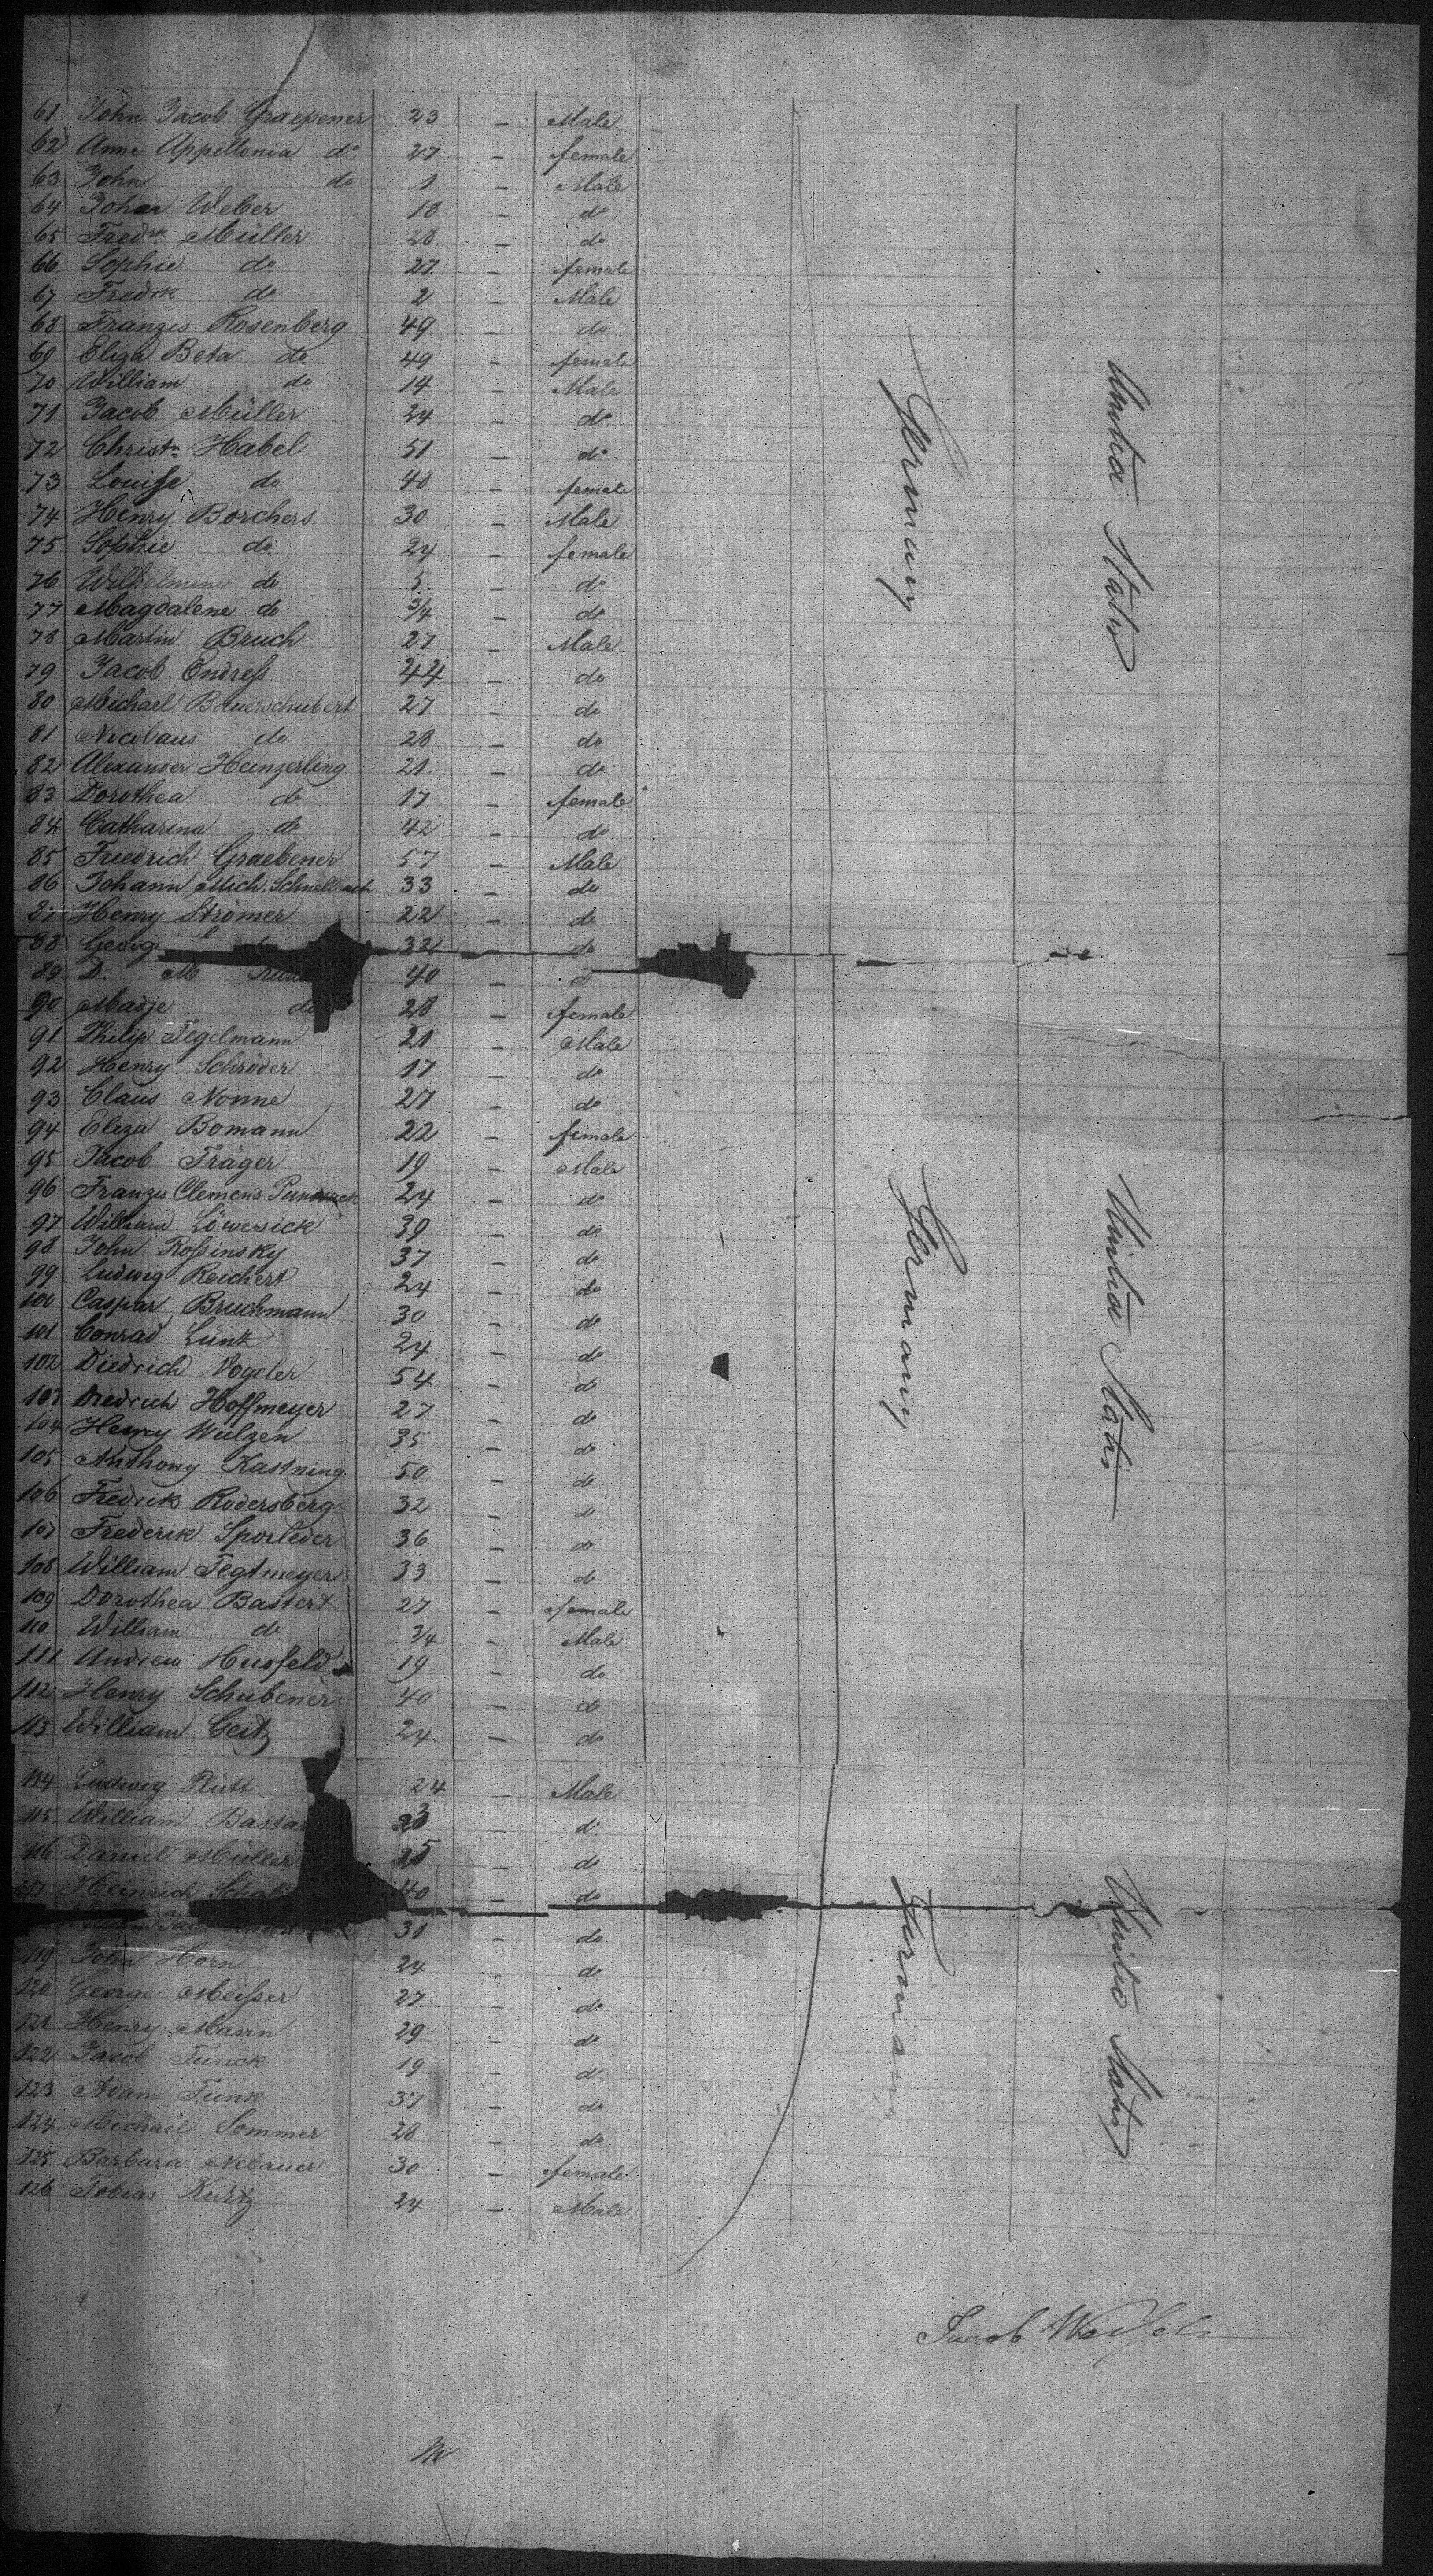 61 John Jacob Graepener 23 — Male
62 Anne Appellonia do 27 — female
63 John do 1 — Male
64 Johan Weber 18 — do
65 Fredrk Müller 28 — do
66 Sophie do 27 — female
67 Fredrk do 2 — Male
68 Franzis Rosenberg 49 — do
69 Eliza Beta do 49 — female
70 William do 14 — Male
71 Jacob Müller 24 — do
72 Christn Habel 51 — do
73 Louise do 40 — female
74 Henry Borchers 30 — Male
75 Sophie do 24 — female
76 Wilhelmine do 5 — do
77 Magdalene do 3/4 — do
78 Martin Bruch 27 — Male
79 Jacob Endress 44 — do
80 Michael Bauerschubert 27 — do
81 Nicolaus do 28 — do
82 Alexander Heinzerling 21 — do
83 Dorothea do 17 — female
84 Catharina do 42 — do
85 Friedrich Graebener 57 — Male
86 Johann Mich. 33 — do
87 Henry Strömer 22 — do
88 Georg 32 — do
89 D. M 40 — do
90 Madje do 28 — female
91 Philip Tegelmann 21 — Male
92 Henry Schröder 17 — do
93 Claus Nonne 27 — do
94 Eliza Bomann 22 — female
95 Jacob Träger 19 — Male
96 Franzis Clemens 24 — do
97 William Löwesick 39 — do
98 John Rossinsky 37 — do
99 Ludwig Reichert 24 — do
100 Caspar Bruchmann 30 — do
101 Conrad Lünk 24 — do
102 Diedrich Vogeler 54 — do
103 Diedrich Hoffmeyer 27 — do
104 Henry Wulzen 35 — do
105 Anthony Kastning 50 — do
106 Fredrik Rodersberg 32 — do
107 Frederik Sporleder 36 — do
108 William Tegtmeyer 33 — do
109 Dorothea Bastert 27 — female
110 William do 3/4 — Male
111 Andrew Husfeld 19 — do
112 Henry Schubener 40 — do
113 William Geitz 24 — do
114 Ludwig Plütt 24 — Male
115 William Basta — do
116 Daniel Müller — do
117 Heinrich 40 — do
31 — do
119 John Horn 24 — do
120 George Meisser 27 — do
121 Henry Mann 29 — do
122 Jacob Funck 19 — do
123 Adam Funk 37 — do
124 Michael Sommer 28 — do
125 Barbara Nebauer 30 — female
126 Tobias Kurtz 24 — Male
Germany
United States
Germany
United States
Germany
United States
Jacob